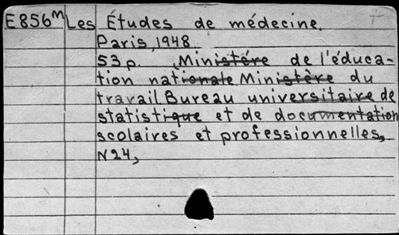 E856M Les Études de médecine.
Paris, 1948.
53 p. Ministére de l'éduca-
tion nationale Ministère du
travail Bureau universitaire de
statistique et de documentation
scolaires et professionnelles,
N24,